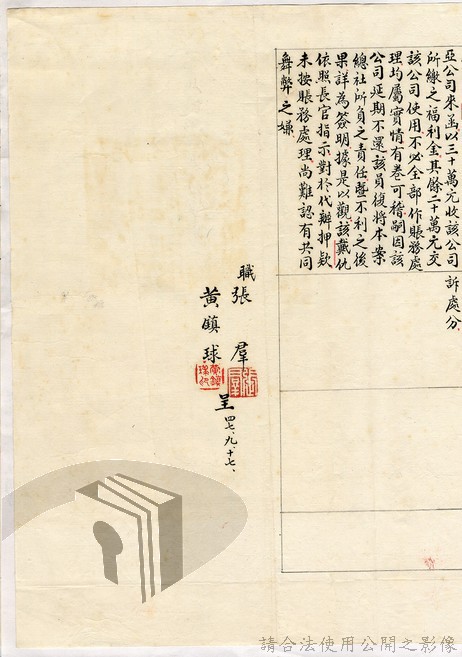 亞公司來函以三十萬元收該公司
所繳之福利金其餘二十萬元交
該公司使用不必全部作賬務處
理均屬實情有卷可稽嗣因該
公司延期不還該員復將本案
總社所負之責任暨不利之後
果詳為簽明據是以觀該戴仇
依照長官指示對於代辦押款
未按賬務處理尚難認有共同
舞弊之嫌
訴處分
職張羣
黃鎮球
呈
四七、九、十七、
請合法使用公開之影像